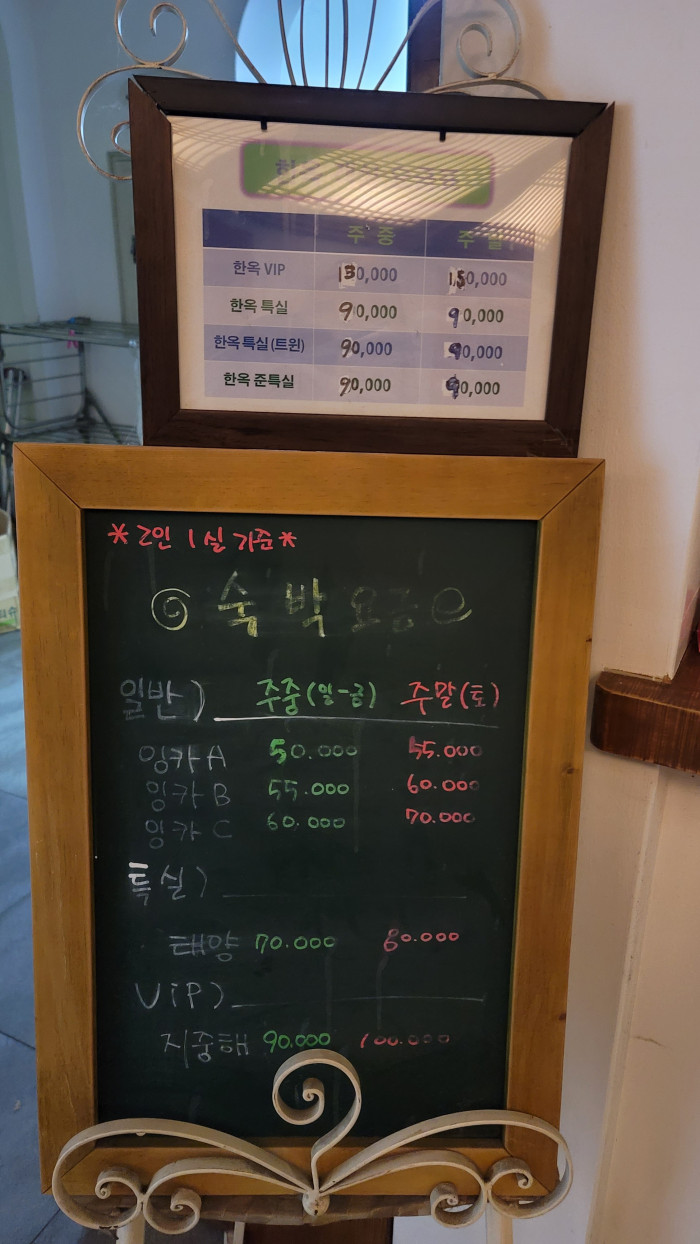 주중 주말
한옥 VIP 130,000 150,000
한옥 특실 90,000 90,000
한옥 특실 (트윈) 90,000 90,000
한옥 준특실 90,000 90,000
*2인 1실 기준*
숙박요금
일반) 주중(일-금) 주말(토)
잉카 A 50.000 55.000
잉카 B 55.000 60.000
잉카 C 60.000 70.000
특실)
태양 70.000 80.000
ViP)
지중해 90.000 100.000